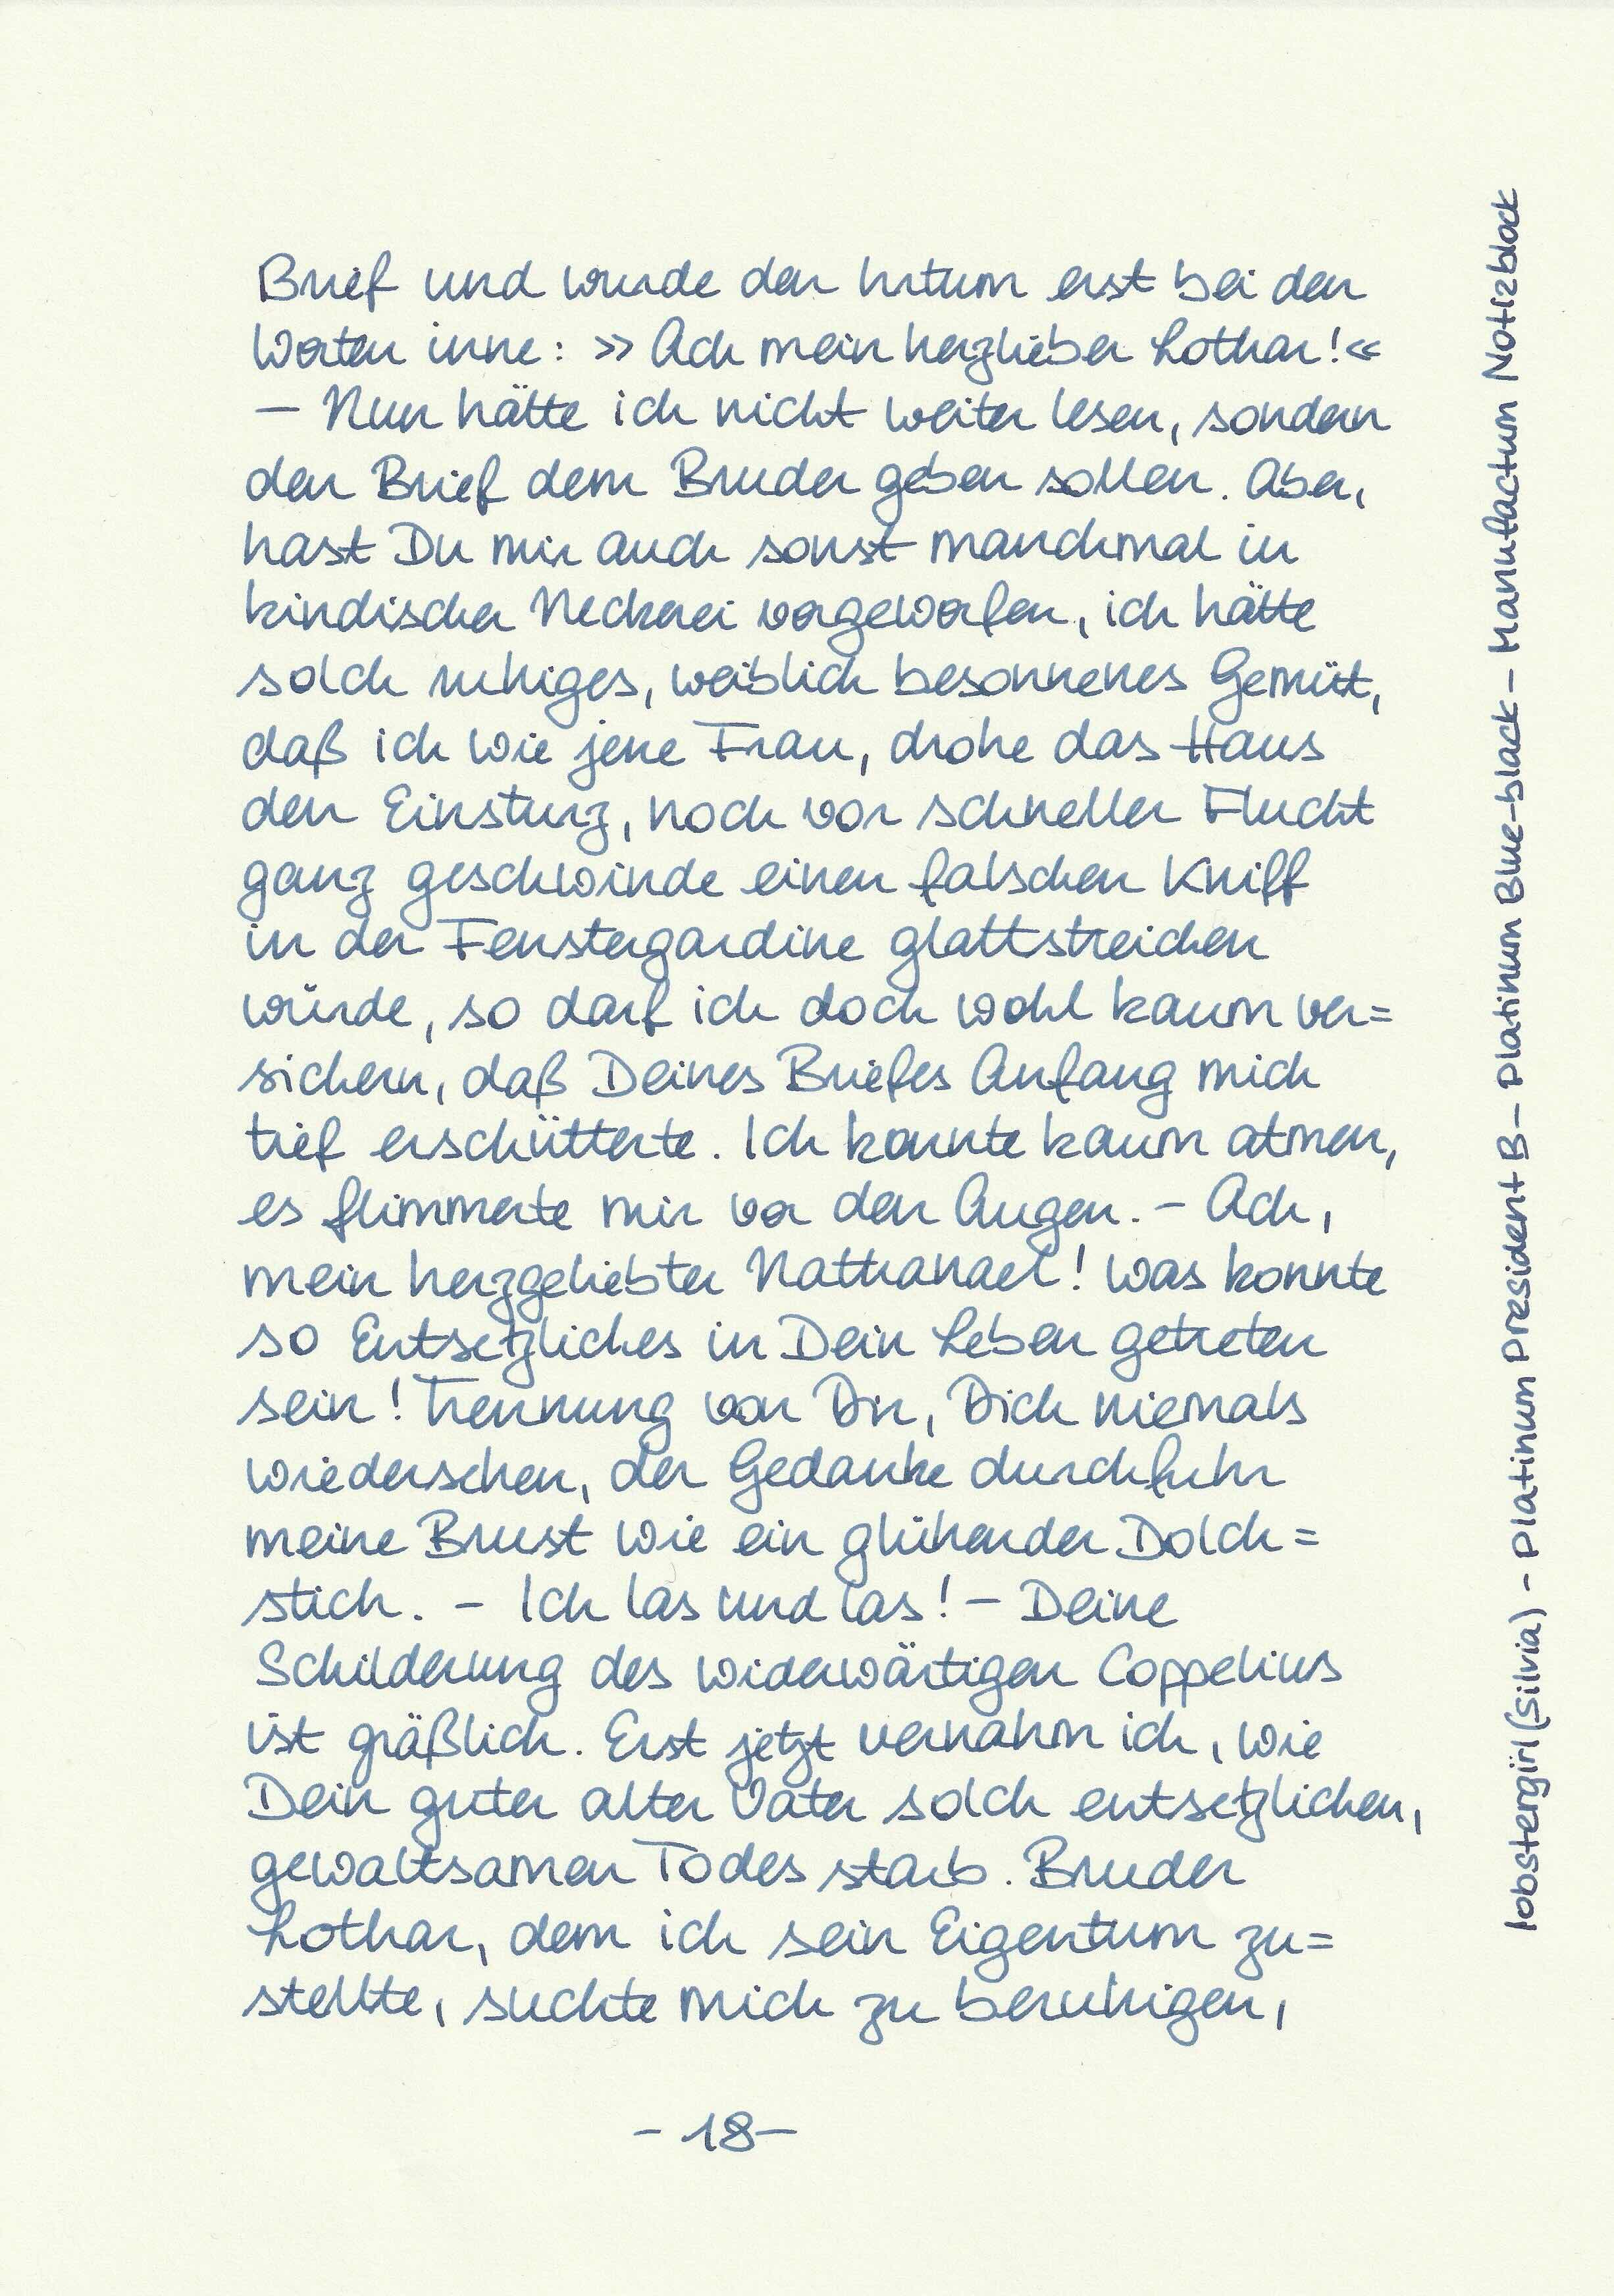 Brief und wurde den Irrtum erst bei den
Worten inne: » Ach mein herzlieber Lothar!«
– Nun hätte ich nicht weiter lesen, sondern
den Brief dem Bruder geben sollen. Aber,
hast Du mir auch sonst manchmal in
kindischer Neckerei vorgeworfen, ich hätte
solch ruhiges, weiblich besonnenes Gemüt,
daß ich wie jene Frau, drohe das Haus
den Einsturz, noch vor schneller Flucht
ganz geschwinde einen falschen Kniff
in der Fenstergardine glattstreichen
würde, so darf ich doch wohl kaum ver=
sichern, daß Deines Briefes Anfang mich
tief erschütterte. Ich konnte kaum atmen,
es flimmerte mir vor den Augen. – Ach,
mein herzgeliebter Nathanael! was konnte
so Entsetzliches in Dein Leben getreten
sein! Trennung von Dir, Dich niemals
wiedersehen, der Gedanke durchfuhr
meine Brust wie ein glühender Dolch=
stich. – Ich las und las! – Deine
Schilderung des widerwärtigen Coppelius
ist gräßlich. Erst jetzt vernahm ich, wie
Dein guter alter Vater solch entsetzlichen,
gewaltsamen Todes starb. Bruder
Lothar, dem ich sein Eigentum zu=
stellte, suchte mich zu beruhigen,
– 18 –
lobstergirl (Silvia) – Platinum President B – Platinum Blue-black – Manufactum Notizblock